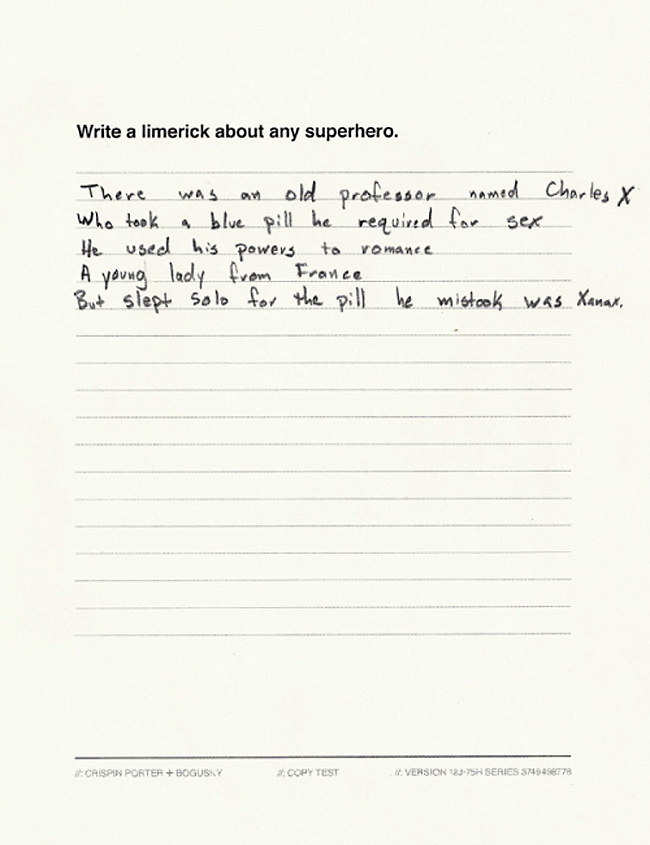 Write a limerick about any superhero.
There was an old professor named Charles X
Who took a blue pill he required for sex
He used his powers to romance
A young lady from France
But slept solo for the pill he mistook was Xanax.
//: CRISPIN PORTER + BOGUSKY //: COPY TEST //: VERSION 12J-75H SERIES 3749498778